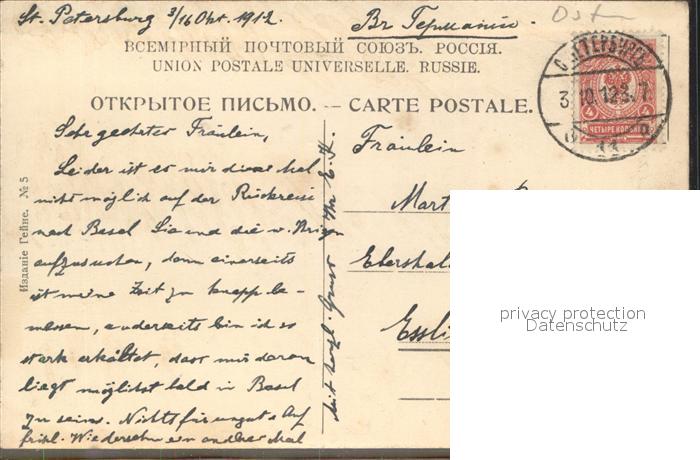 St. Petersburg 3/16 Okt. 1912. Въ Германiю.
ВСЕМIРНЫЙ ПОЧТОВЫЙ СОЮЗЪ. РОССIЯ.
UNION POSTALE UNIVERSELLE. RUSSIE.
ОТКРЫТОЕ ПИСЬМО. -- CARTE POSTALE.
С.ПЕТЕРБУРГЪ
3.10.12
4 4
ЧЕТЫРЕ КОПѢЙКИ
Изданiе Гейне. № 5
Sehr geehrtes Fräulein,
Leider ist es mir dieses Mal
nicht möglich auf der Rückreise
nach Basel Sie und die w. Ihrigen
aufzusuchen, denn einerseits
ist meine Zeit zu knapp be-
messen, anderseits bin ich so
stark erkältet, dass mir daran
liegt möglichst bald in Basel
zu sein. Nichts für ungut & Auf
fröhl. Wiedersehn ein ander Mal
mit herzl. Gruss Ihr
Fräulein
Mart
Ebershal
Essli
privacy protection
Datenschutz